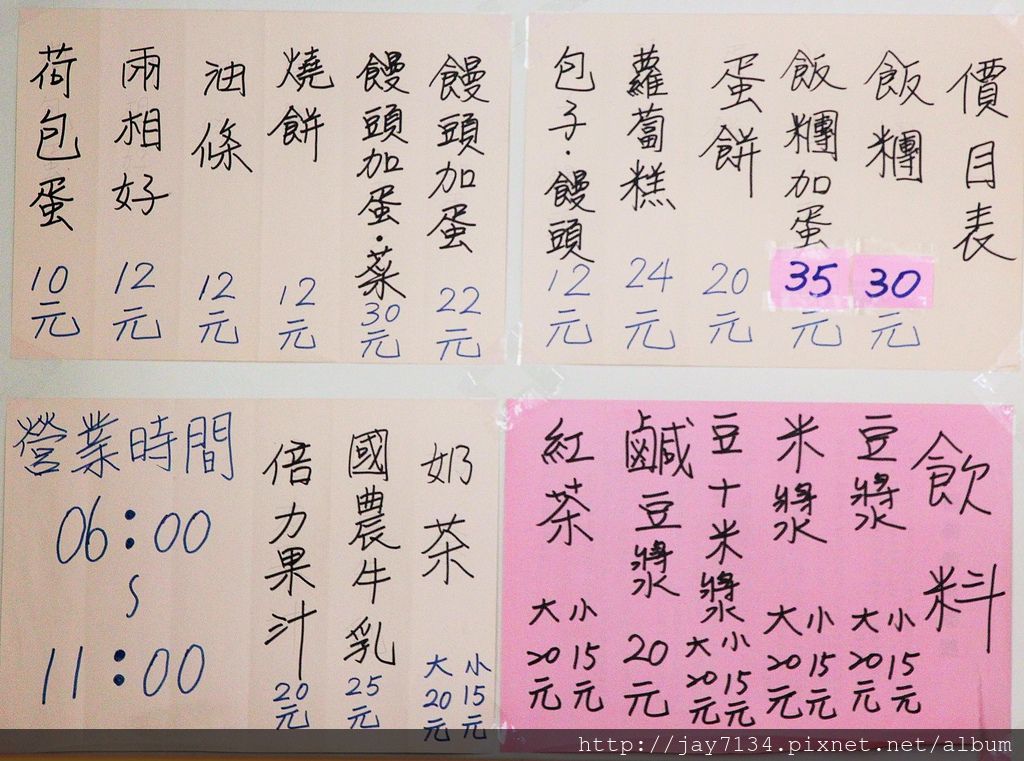 價目表
飯糰 30元
飯糰加蛋 35元
蛋餅 20元
蘿蔔糕 24元
包子·饅頭 12元
饅頭加蛋 22元
饅頭加蛋·菜 30元
燒餅 12元
油條 12元
兩相好 12元
荷包蛋 10元
飲料
豆漿 大20元 小15元
米漿 大20元 小15元
豆十米漿 大20元 小15元
鹹豆漿 20元
紅茶 大20元 小15元
奶茶 大20元 小15元
國農牛乳 25元
倍力果汁 20元
營業時間
06:00
~
11:00
http://jay7134.pixnet.net/album